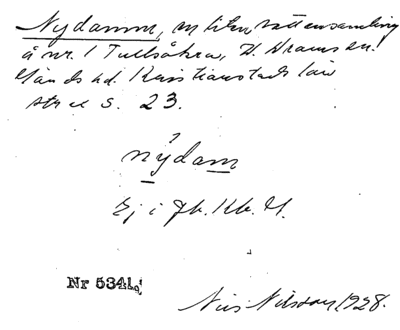 Nydamm, en liten vattensamling
å nr. 1 Tullsåkra, V. Vrams sn.
Gärds hd. Kristianstads län
str s. 23.
nýdam
Ej i Jb. Kb. H.
Nr 5341
Nils Nilsson 1928.